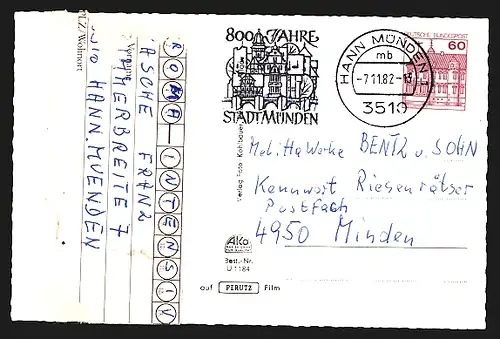 PLZ/Wohnort
Vorname
ROMA-INTENSIV
ASCHE FRANZ
IMERBREITE 7
510 HANN. MUENDEN
800 JAHRE
STADT MÜNDEN
HANN MÜNDEN 1
mb
-7.11.82-13
3510
DEUTSCHE BUNDESPOST
60
Melitta Werke BENTZ u. SOHN
Kennwort Riesenrätsel
Postfach
4950 Minden
Verlag Foto Kohlbauer
AKo
Best.-Nr.
U 1184
auf PERUTZ Film